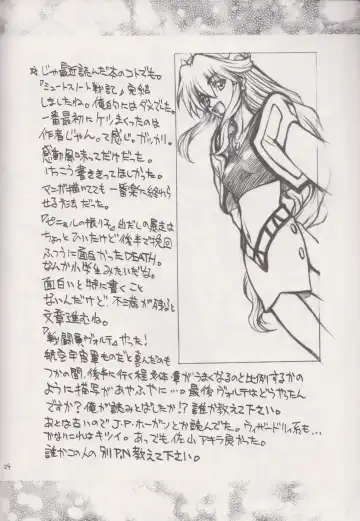 ☆じゃ最近読んだ本のコトでも。
『ミュートスノート戦記』完結
しましたね。俺的にはダメでした。
一番最初にケリをくったのは
作者じゃん。って感じ。ガッカリ。
感動風味ってだけだった。
けっこう書ききってほしかった。
マンガ描いてても一番楽な終わら
せる方法だった。
『ピニェルの振り子』出だしの暴走は
ちょっとひいたけど後半で挽回
ふつうに面白かったDEATH。
なんか小学生みたいだな。
面白いと特に書くこと
ないんだけど、不満が残ると
文章進むね。
『戦闘員ヴォルテ』やった!
航空宇宙軍ものだと喜んだのも
つかの間、後半に行く程文体、書がうまくなるのと比例するかの
ように描写があやふやに…。最後ヴォルテはどうやったん
ですか?俺が読みとばしたか!?誰か教えて下さい。
あとは古いのでJ・P・ホーガンとか読んでた。ウィザードリィ系も…
かなりこれはキツイ。あっでも佐山アキラ良かった。
誰かこの人の別P.N教えて下さい。
24